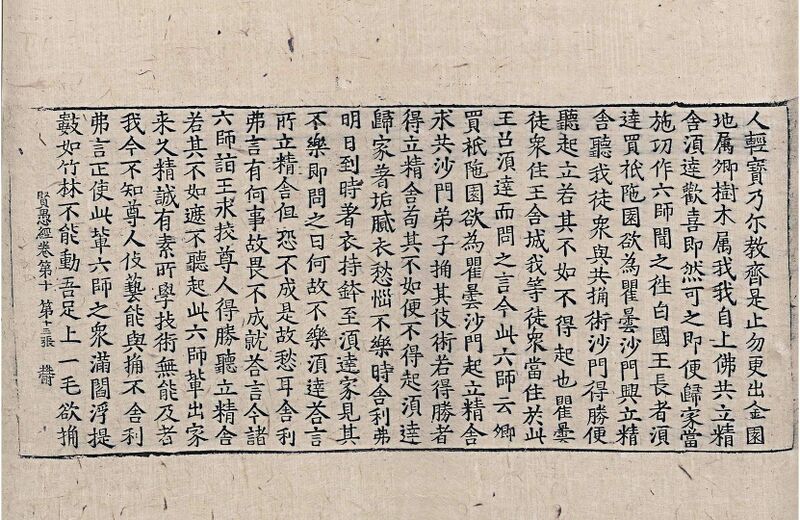 人輕寶乃尔教齊是止勿更出金園
地属卿樹木属我我自上佛共立精
舎湏達歡喜即然可之即便歸家當
施功作六師聞之往白國王長者湏
達買祇陁園欲為瞿曇沙門興立精
舎聽我徒衆與共捔術沙門得勝便
聽起立若其不如不得起也瞿曇
徒衆住王舎城我等徒衆當住於此
王召湏達而問之言今此六師云卿
買祇陁園欲為瞿曇沙門起立精舎
求共沙門弟子捔其伎術若得勝者
得立精舎苟其不如便不得起湏達
歸家著垢膩衣愁惱不樂時舎利弗
明日到時著衣持鉢至湏達家見其
不樂即問之曰何故不樂湏達荅言
所立精舎但恐不成是故愁耳舎利
弗言有何事故畏不成就荅言今諸
六師詣王求挍尊人得勝聽立精舎
若其不如遮不聽起此六師輩出家
来久精誠有素所學技術無能及者
我今不知尊人伎藝能與捔不舎利
弗言正使此輩六師之衆滿閻浮提
數如竹林不能動吾足上一毛欲捔
賢愚經卷第十 第十三張